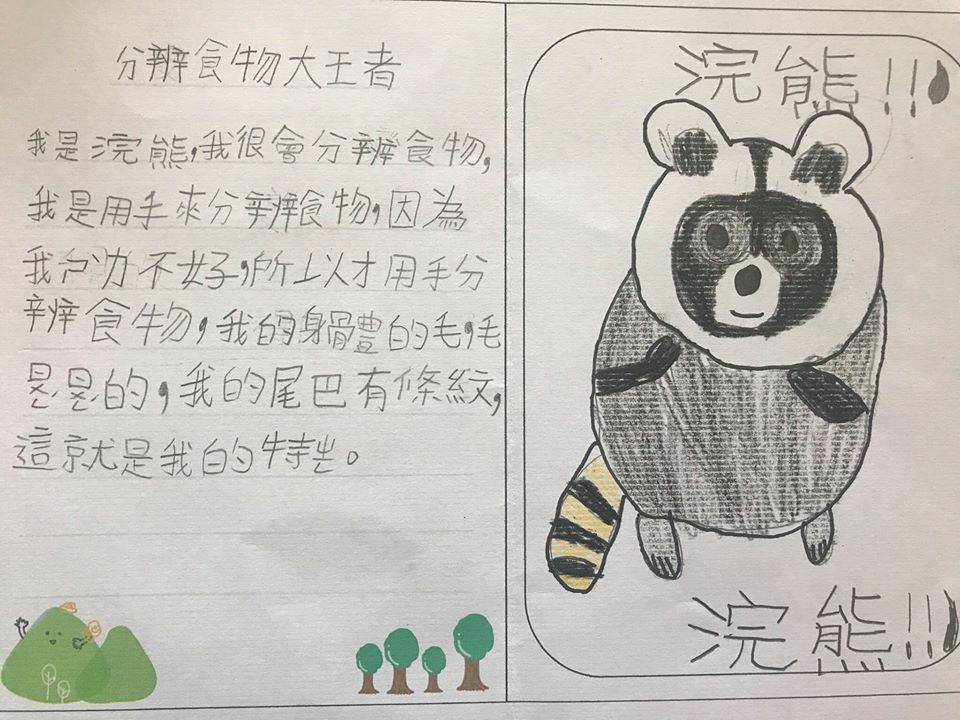 分辨食物大王者
我是浣熊,我很會分辨食物,
我是用手來分辨食物,因為
我 不好,所以才用手分
辨食物,我的身體的毛,毛
的,我的尾巴有條紋,
這就是我的特 。
浣熊!!
浣熊!!!